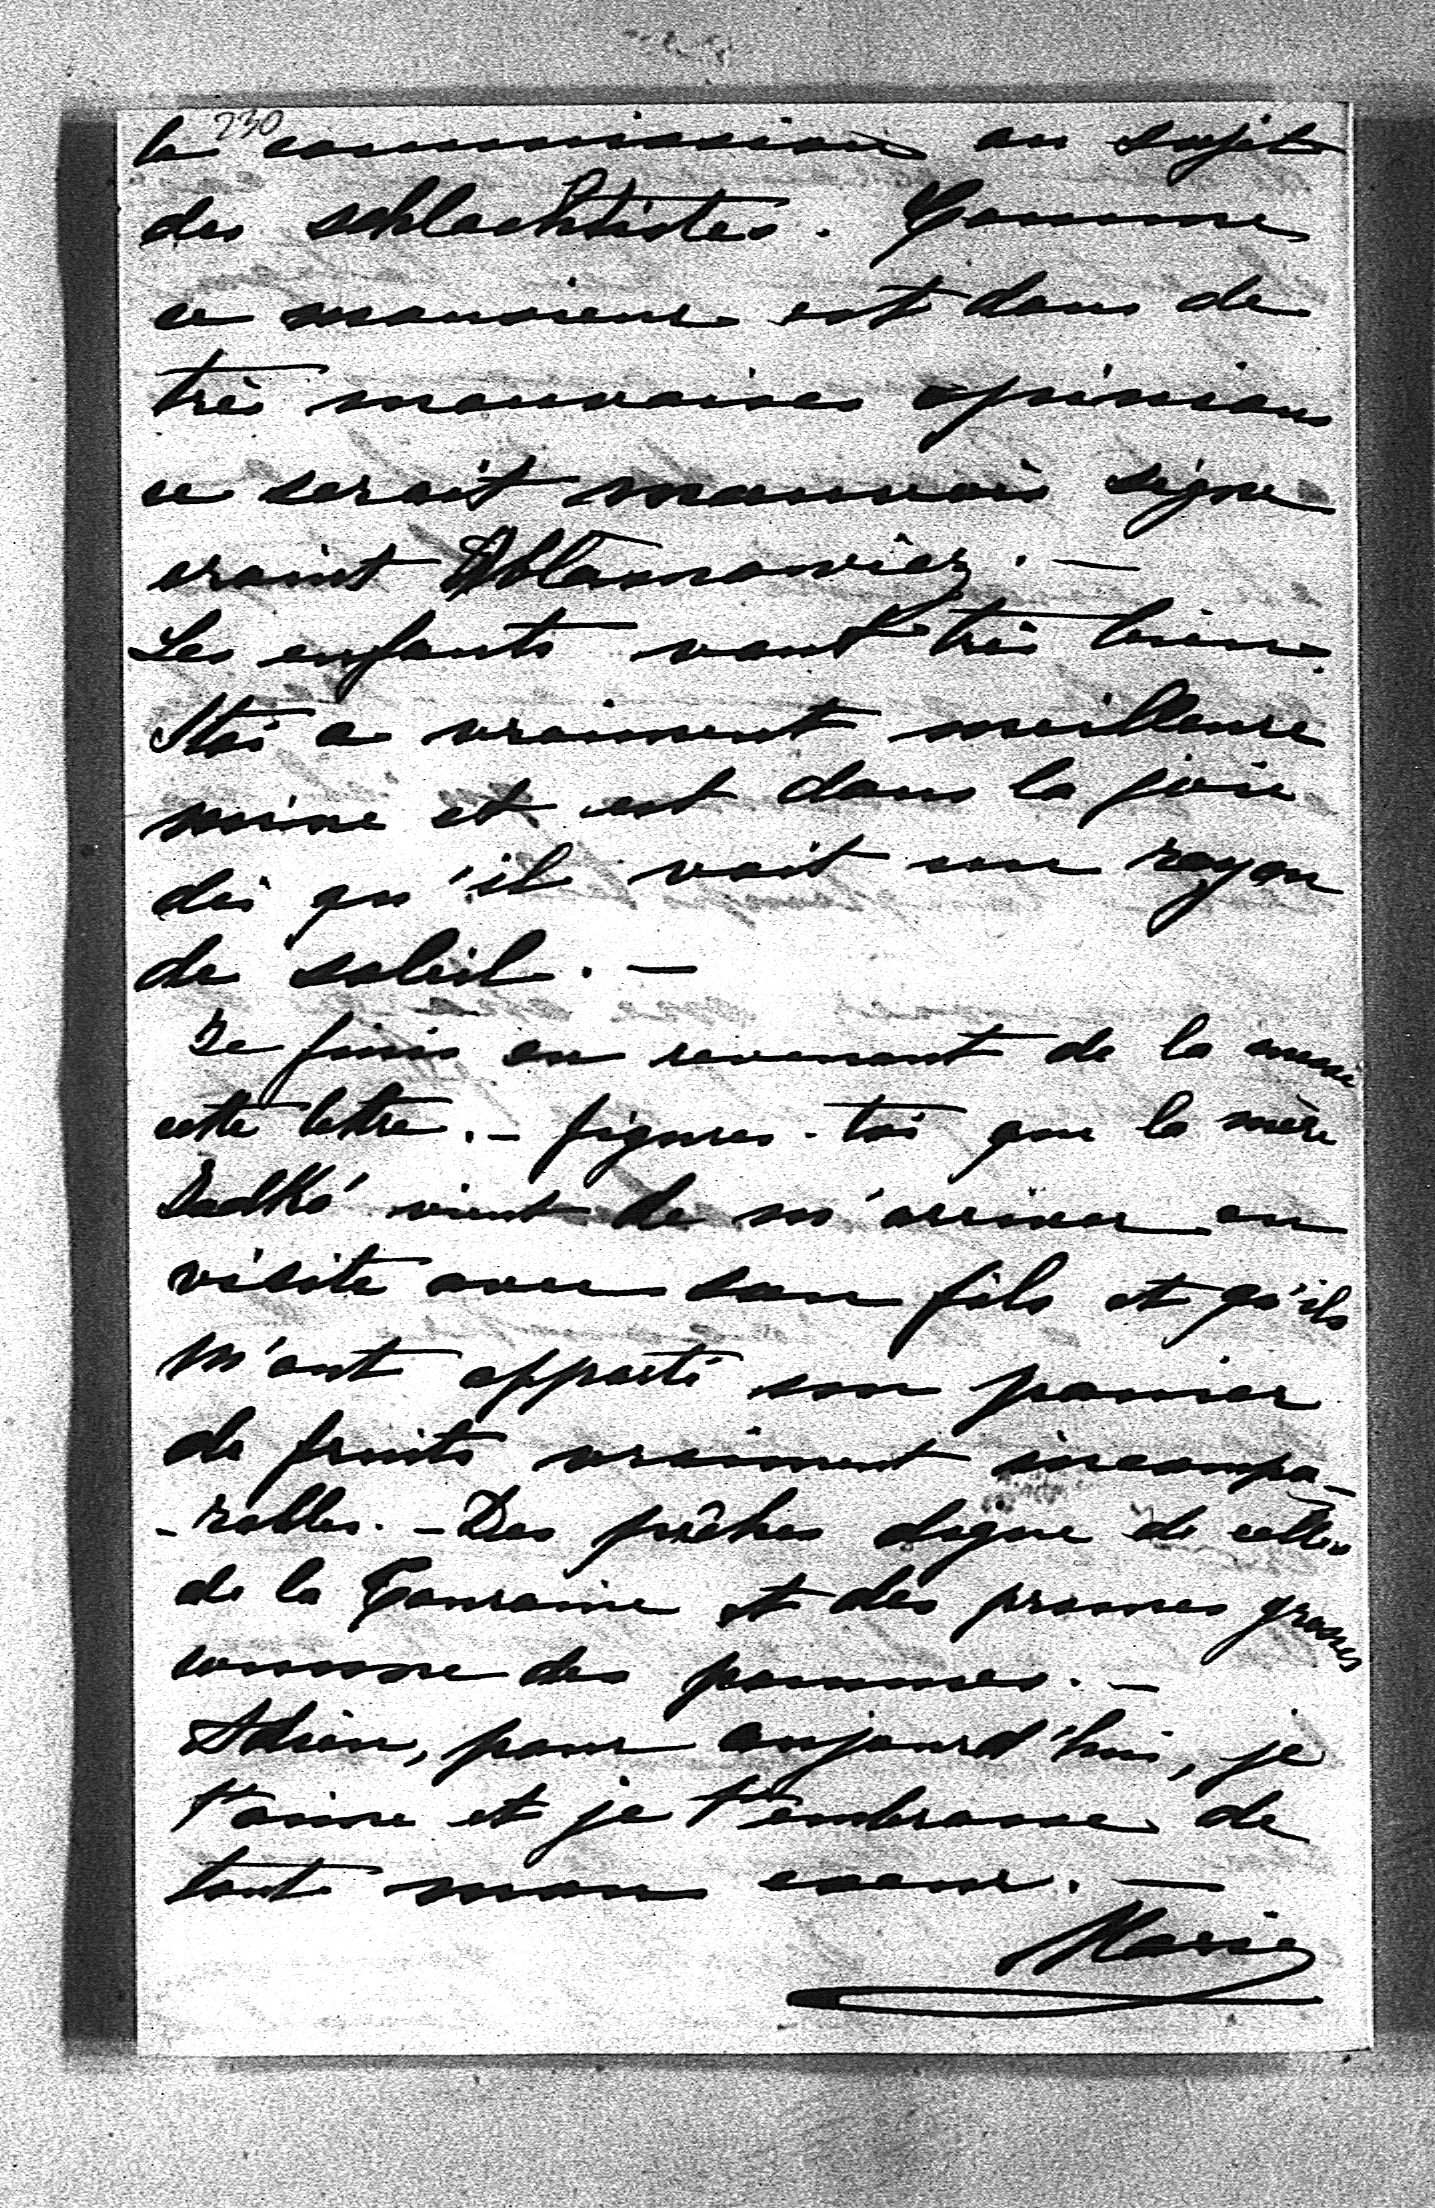 230
la commission au sujet
des schlachtistes. Comme
ce monsieur est dans de
très mauvaises opinions
ce serait mauvais signe
craint Ablamowicz. —
Les enfants vont très bien.
Stas a vraiment meilleure
mine et est dans la joie
dès qu'il voit un rayon
de soleil. —
Je finis en revenant de la messe
cette lettre. — figures-toi que la mère
vient de m'arriver en
visite avec son fils et qu'ils
m'ont apporté un panier
de fruits vraiment incompa-
-rables. — Des pêches digne de celles
de la Touraine et des prunes grosses
comme des pommes. —
Adieu, pour aujourd'hui, je
t'aime et je t'embrasse de
tout mon coeur. —
Marie